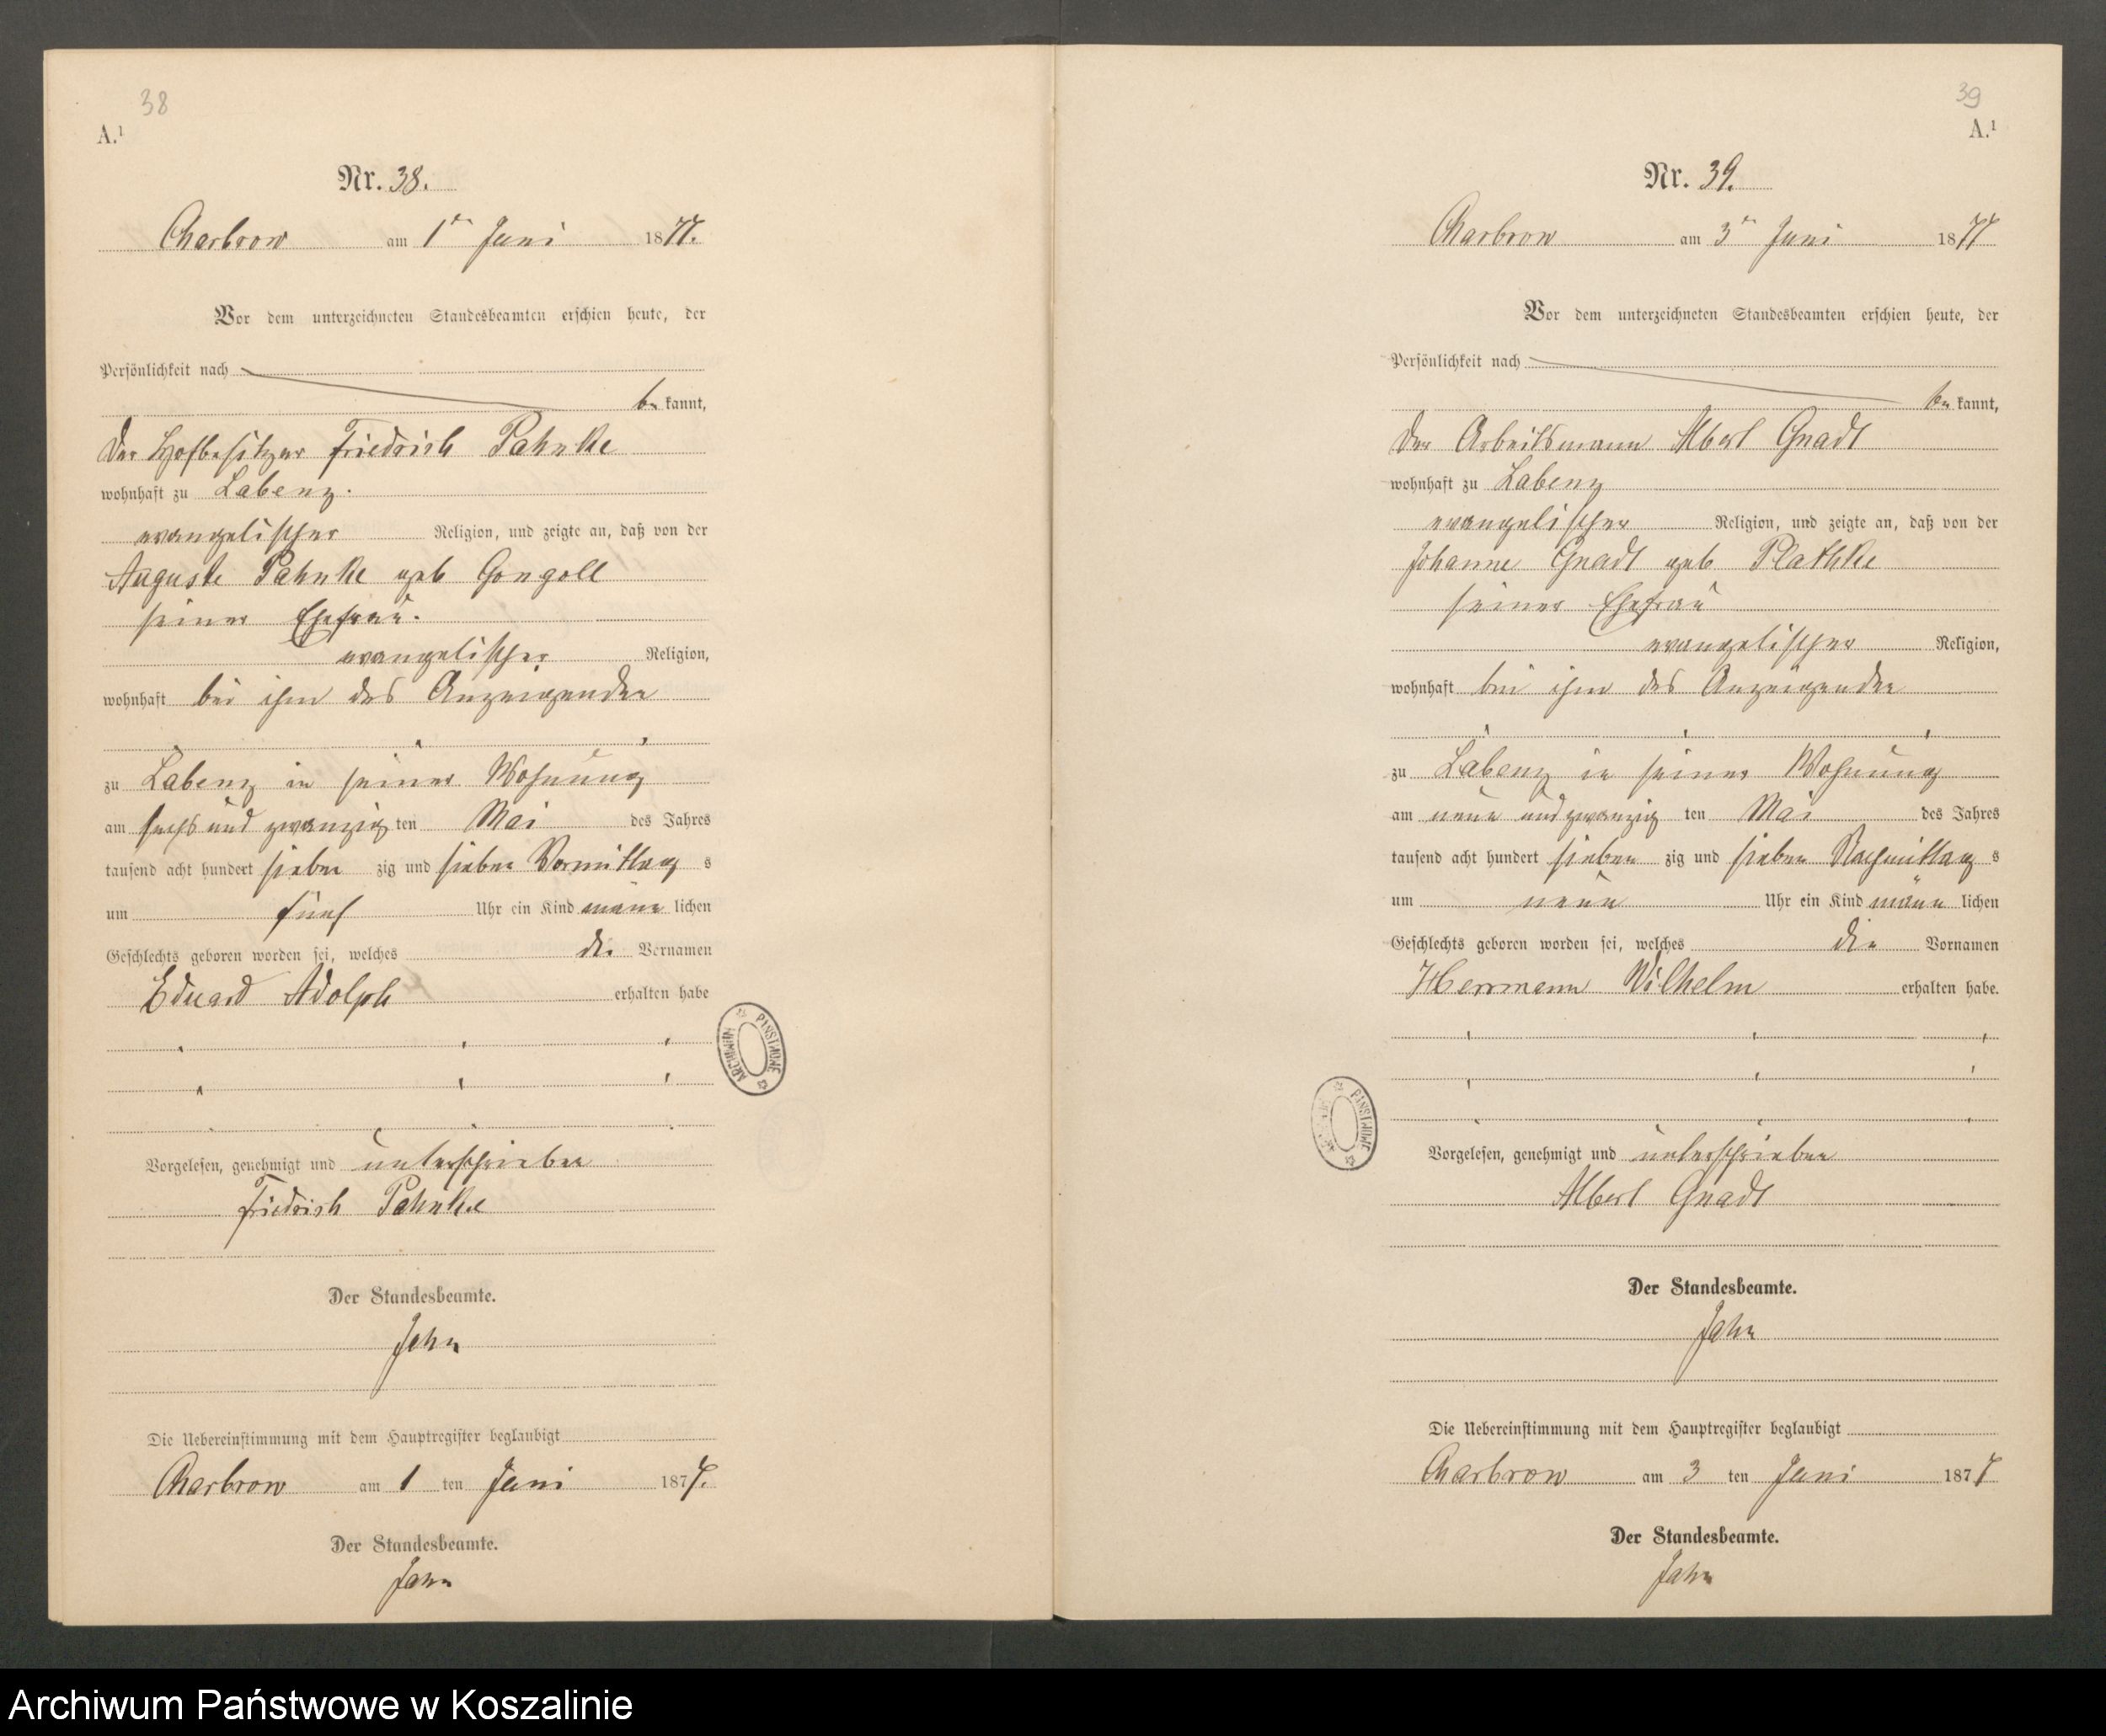 38
A.¹
Nr. 38.
Charbrow am 1ten Juni 1877.
Vor dem unterzeichneten Standesbeamten erschien heute, der
Persönlichkeit nach
be kannt,
der Hofbesitzer Friedrich Pahnke
wohnhaft zu Labenz.
evangelischer Religion, und zeigte an, daß von der
Auguste Pahnke geb Gongoll
seiner Ehefrau.
evangelischer Religion,
wohnhaft bei ihm des Anzeigenden
zu Labenz in seiner Wohnung
am sechs und zwanzig ten Mai des Jahres
tausend acht hundert sieben zig und sieben Vormittag s
um fünf Uhr ein Kind männ lichen
Geschlechts geboren worden sei, welches die Vornamen
Eduard Adolph erhalten habe
Vorgelesen, genehmigt und unterschrieben
Friedrich Pahnke
Der Standesbeamte.
Jahn
Die Uebereinstimmung mit dem Hauptregister beglaubigt
Charbrow am 1 ten Juni 1877.
Der Standesbeamte.
Jahn
ARCHIWUM PAŃSTWOWE
39
A.¹
Nr. 39.
Charbrow am 3ten Juni 1877
Vor dem unterzeichneten Standesbeamten erschien heute, der
Persönlichkeit nach
be kannt,
der Arbeitsmann Albert Gnadt
wohnhaft zu Labenz
evangelischer Religion, und zeigte an, daß von der
Johanne Gnadt geb Plathke
seiner Ehefrau
evangelischer Religion,
wohnhaft bei ihm des Anzeigenden
zu Labenz in seiner Wohnung
am neun und zwanzig ten Mai des Jahres
tausend acht hundert sieben zig und sieben Nachmittag s
um neun Uhr ein Kind männ lichen
Geschlechts geboren worden sei, welches die Vornamen
Herrmann Wilhelm erhalten habe.
Vorgelesen, genehmigt und unterschrieben
Albert Gnadt
Der Standesbeamte.
Jahn
Die Uebereinstimmung mit dem Hauptregister beglaubigt
Charbrow am 3 ten Juni 1877
Der Standesbeamte.
Jahn
ARCHIWUM PAŃSTWOWE
Archiwum Państwowe w Koszalinie